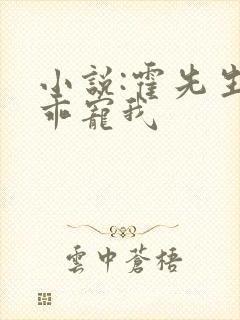 小說:霍先生
乖寵我
雲中蒼梧